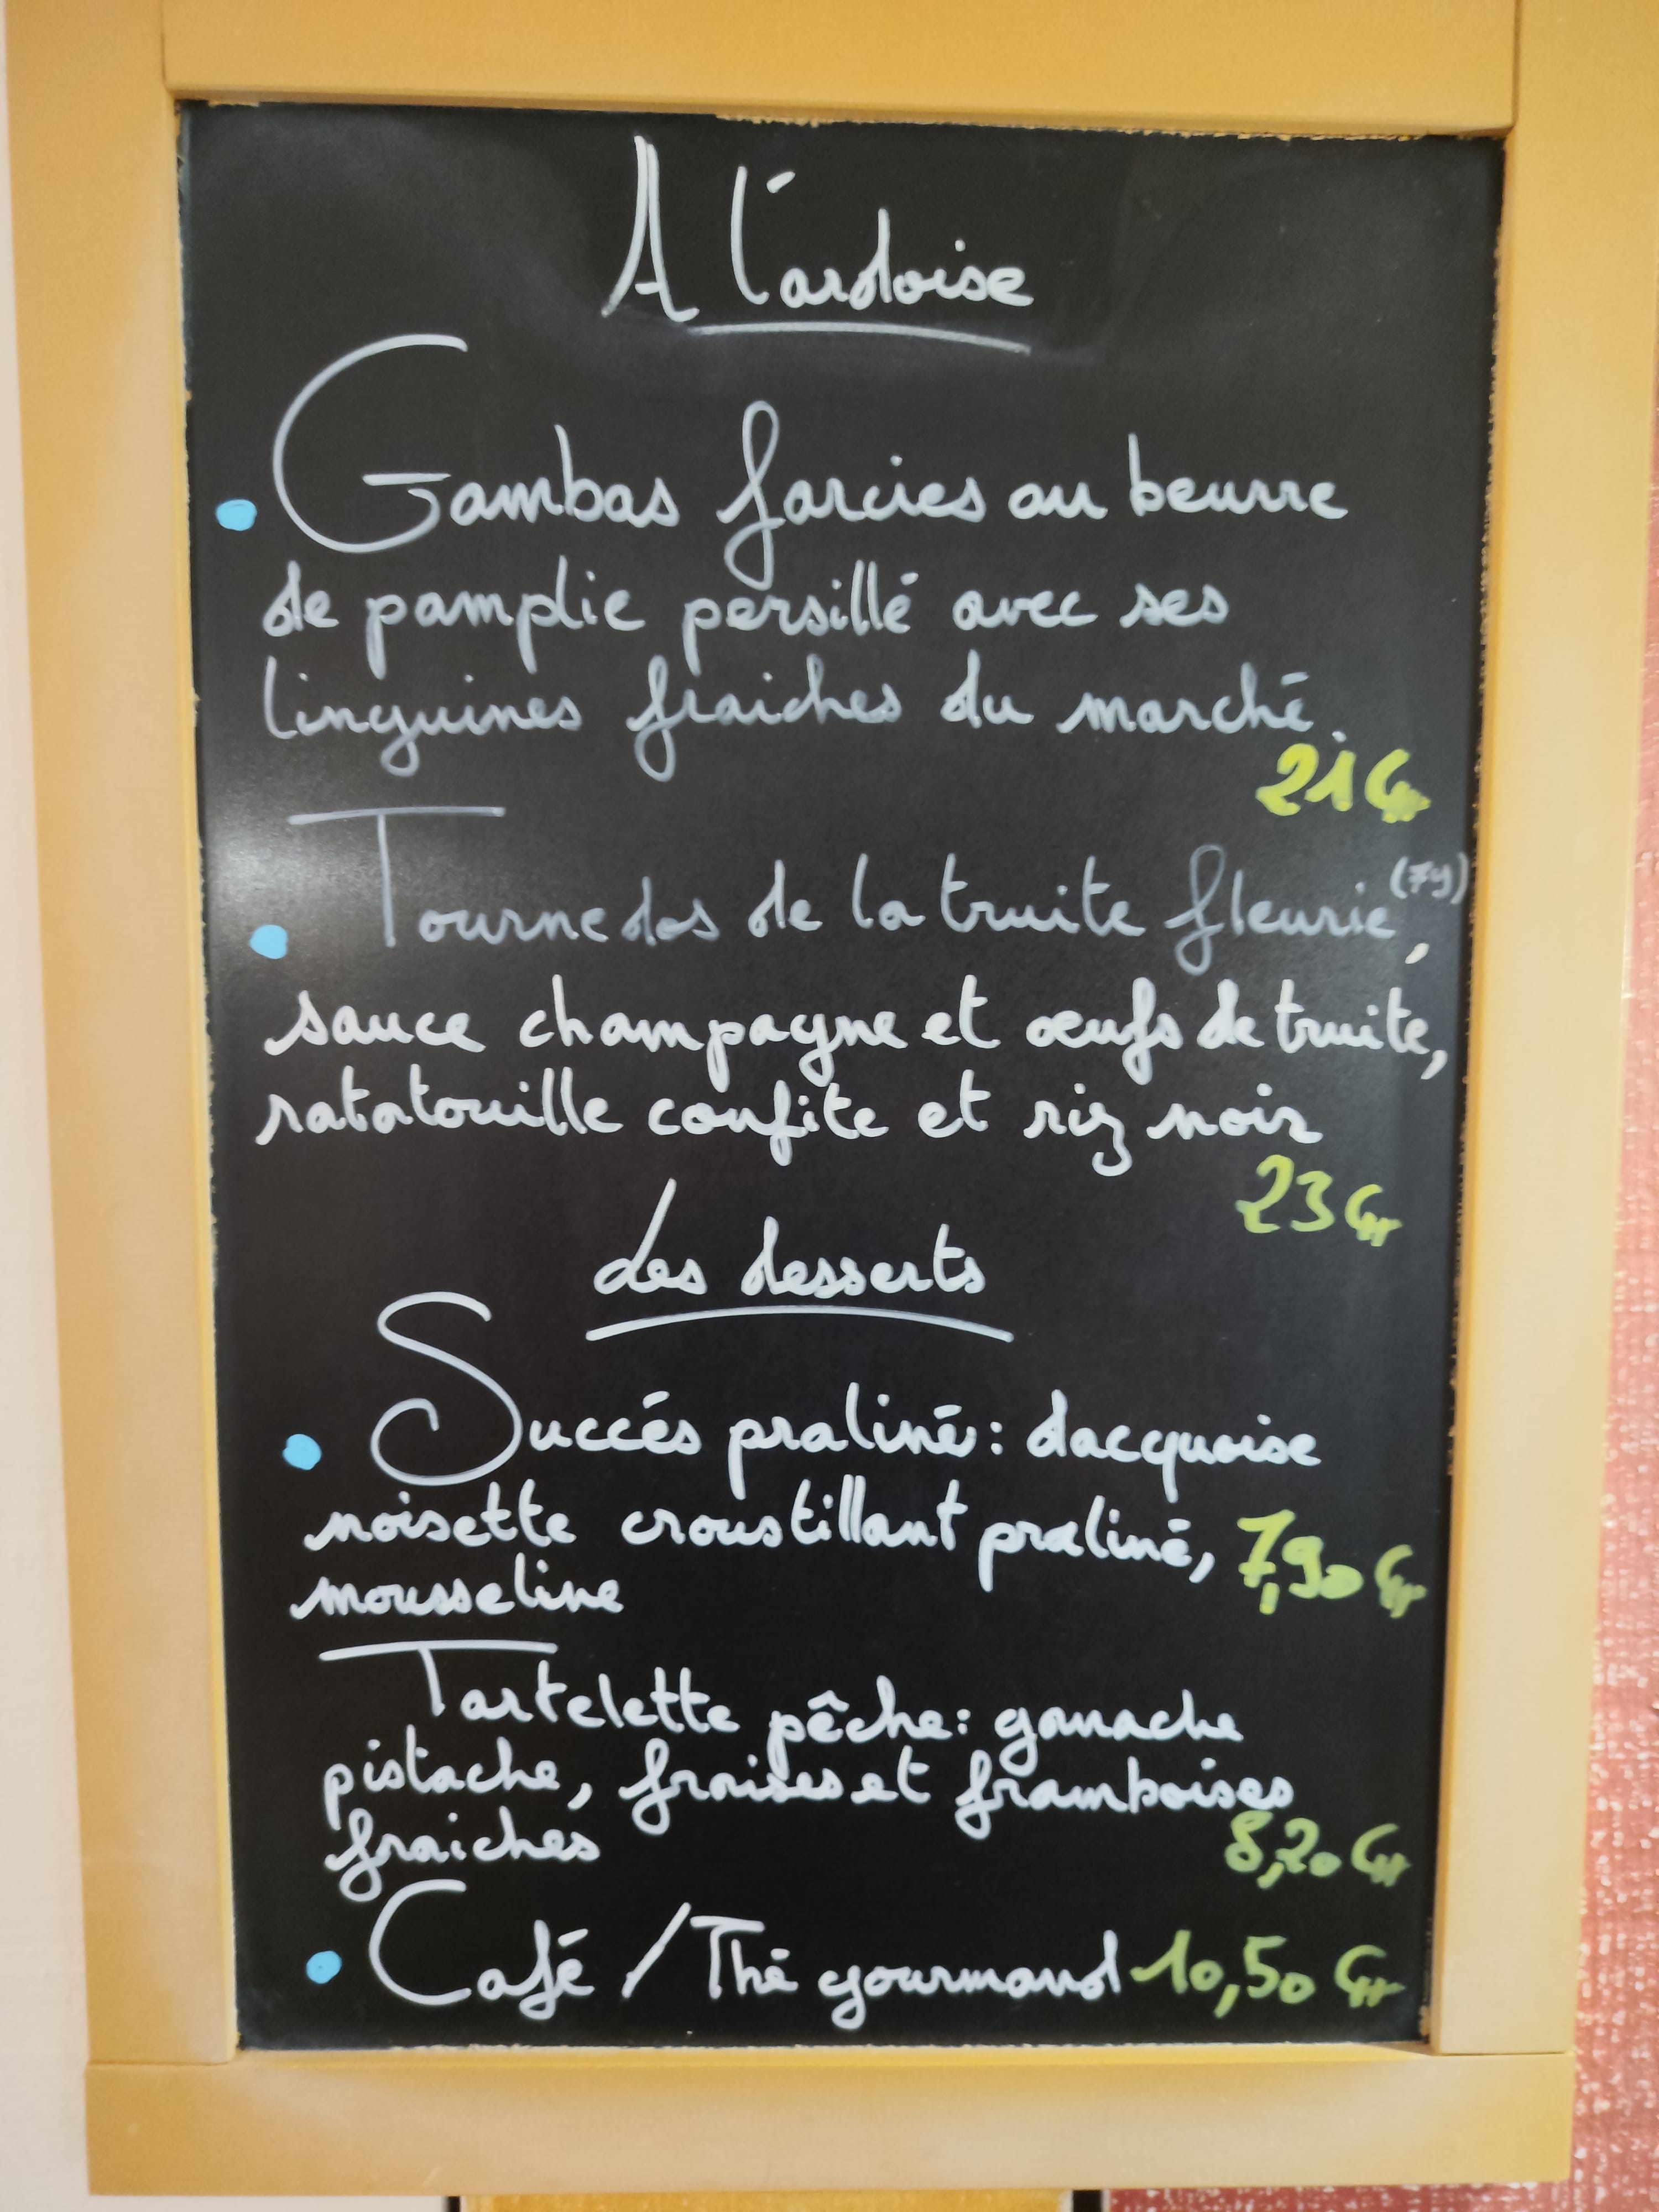 A l'ardoise
Gambas farcies au beurre
de pamplie persillé avec ses
linguines fraiches du marché.
21€
Tournedos de la truite fleurie (79),
sauce champagne et œufs de truite,
ratatouille confite et riz noir
23€
Les desserts
Succés praliné: dacquoise
noisette croustillant praliné, 7,90€
mousseline
Tartelette pêche: ganache
pistache, fraises et framboises
fraiches 8,20€
Café / Thé gourmand 10,50€